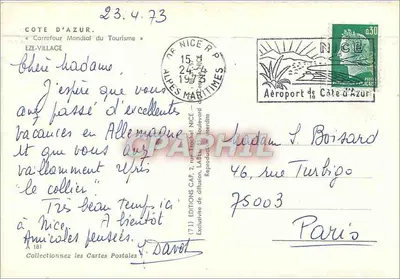 23.4.73
COTE D'AZUR.
« Carrefour Mondial du Tourisme »
EZE-VILLAGE
Chère Madame.
J'espère que vous
avez passé d'excellentes
vacances en Allemagne
et que vous avez
vaillamment repris
le collier.
Très beau temps ici
à Nice. A bientôt
Amicales pensées.
J. Davot
A 181
Collectionnez les Cartes Postales
(711) EDITIONS CAP,
Reproduction interdite
06 NICE R.P.
15 H
24-4
1973
ALPES MARITIMES
NICE
Aéroport de la Côte d'Azur
0,30
Madame S. Boisard
46, rue Turbigo
75003
Paris
CPAPHIL